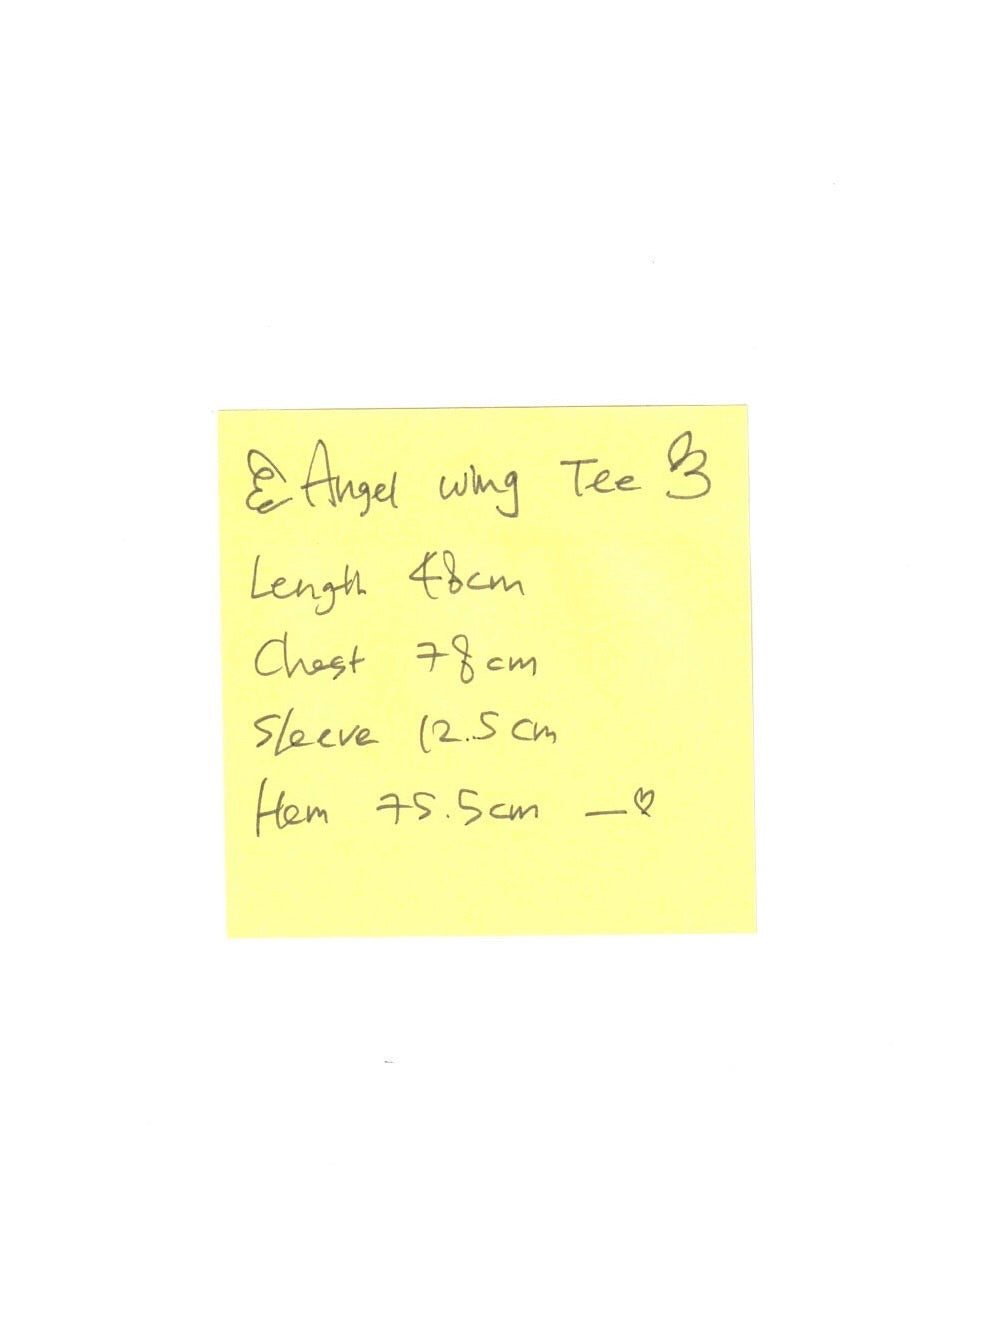 Angel wing Tee
Length 48cm
Chest 78cm
Sleeve 12.5cm
Hem 75.5cm —♡